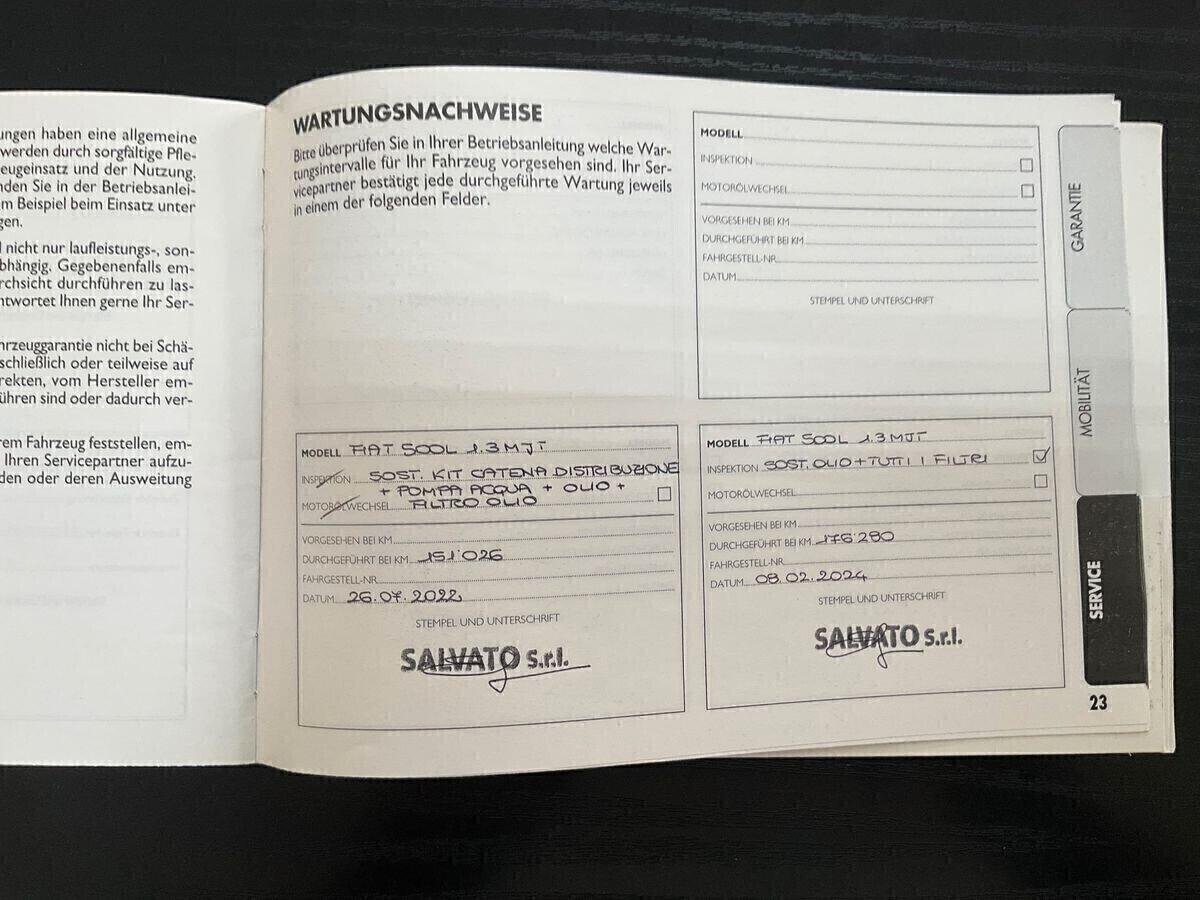 ungen haben eine allgemeine
werden durch sorgfältige Pfle-
eugeinsatz und der Nutzung.
nden Sie in der Betriebsanlei-
m Beispiel beim Einsatz unter
gen.
l nicht nur laufleistungs-, son-
bhängig. Gegebenenfalls em-
rchsicht durchführen zu las-
ntwortet Ihnen gerne Ihr Ser-
hrzeuggarantie nicht bei Schä-
schließlich oder teilweise auf
rekten, vom Hersteller em-
ühren sind oder dadurch ver-
rem Fahrzeug feststellen, em-
Ihren Servicepartner aufzu-
den oder deren Ausweitung
WARTUNGSNACHWEISE
Bitte überprüfen Sie in Ihrer Betriebsanleitung welche War-
tungsintervalle für Ihr Fahrzeug vorgesehen sind. Ihr Ser-
vicepartner bestätigt jede durchgeführte Wartung jeweils
in einem der folgenden Felder.
MODELL
INSPEKTION
MOTORÖLWECHSEL
VORGESEHEN BEI KM
DURCHGEFÜHRT BEI KM
FAHRGESTELL-NR.
DATUM
STEMPEL UND UNTERSCHRIFT
MODELL FIAT 500L 1.3 MJT
INSPEKTION SOST. KIT CATENA DISTRIBUZIONE
+ POMPA ACQUA + OLIO +
MOTORÖLWECHSEL FILTRO OLIO
VORGESEHEN BEI KM
DURCHGEFÜHRT BEI KM 151'026
FAHRGESTELL-NR.
DATUM 26.07.2022
STEMPEL UND UNTERSCHRIFT
SALVATO S.r.l.
MODELL FIAT 500L 1.3 MJT
INSPEKTION SOST. OLIO + TUTTI I FILTRI
MOTORÖLWECHSEL
VORGESEHEN BEI KM
DURCHGEFÜHRT BEI KM 176'280
FAHRGESTELL-NR.
DATUM 08.02.2024
STEMPEL UND UNTERSCHRIFT
SALVATO S.r.l.
GARANTIE
MOBILITÄT
SERVICE
23